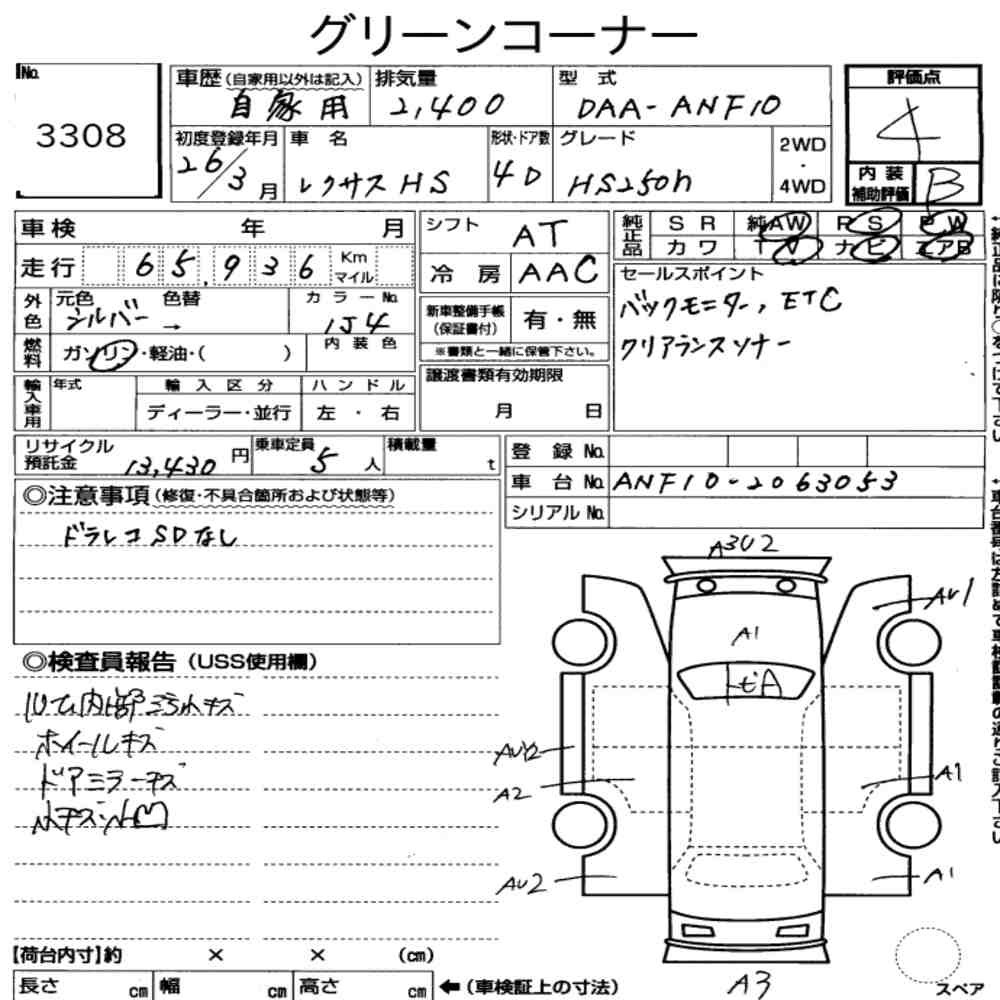 グリーンコーナー
No.
3308
車歴(自家用以外は記入) 排気量 型 式
自家用 2,400 DAA-ANF10
初度登録年月 車 名 形状・ドア数 グレード
26/3 月 レクサス HS 4D HS250h
2WD
・
4WD
評価点
4
内 装
補助評価 B
車検 年 月
走行 65,936 Km
マイル
外色 元色 色替 カ ラ ー No.
シルバー → 1J4
燃料 ガソリン・軽油・( ) 内 装 色
輸入車用 年式 輸 入 区 分 ハ ン ド ル
ディーラー・並行 左 ・ 右
シフト AT
冷 房 AAC
新車整備手帳
(保証書付) 有・無
※書類と一緒に保管下さい。
譲渡書類有効期限
月 日
純正品 S R 純AW R S P W
カ ワ T V ナ ビ エアB
セールスポイント
バックモニター, ETC
クリアランスソナー
リサイクル
預託金 13,430 円 乗車定員 5 人 積載量 t
登 録 No.
車 台 No. ANF10-2063053
シリアル No.
◎注意事項(修復・不具合箇所および状態等)
ドラレコ SDなし
◎検査員報告(USS使用欄)
ホイールキズ
ドアミラーキズ
A3U2
AU1
A1
AU2
A2
A1
AU2
A1
A3
スペア
【荷台内寸】約 × × (cm)
長さ cm 幅 cm 高さ cm ←(車検証上の寸法)